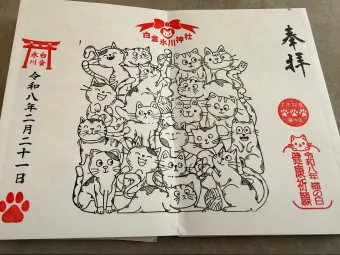 奉拝
白金氷川神社
2月22日
猫の日
令和八年 猫の日
健康祈願
白金
氷川
令和八年二月二十一日